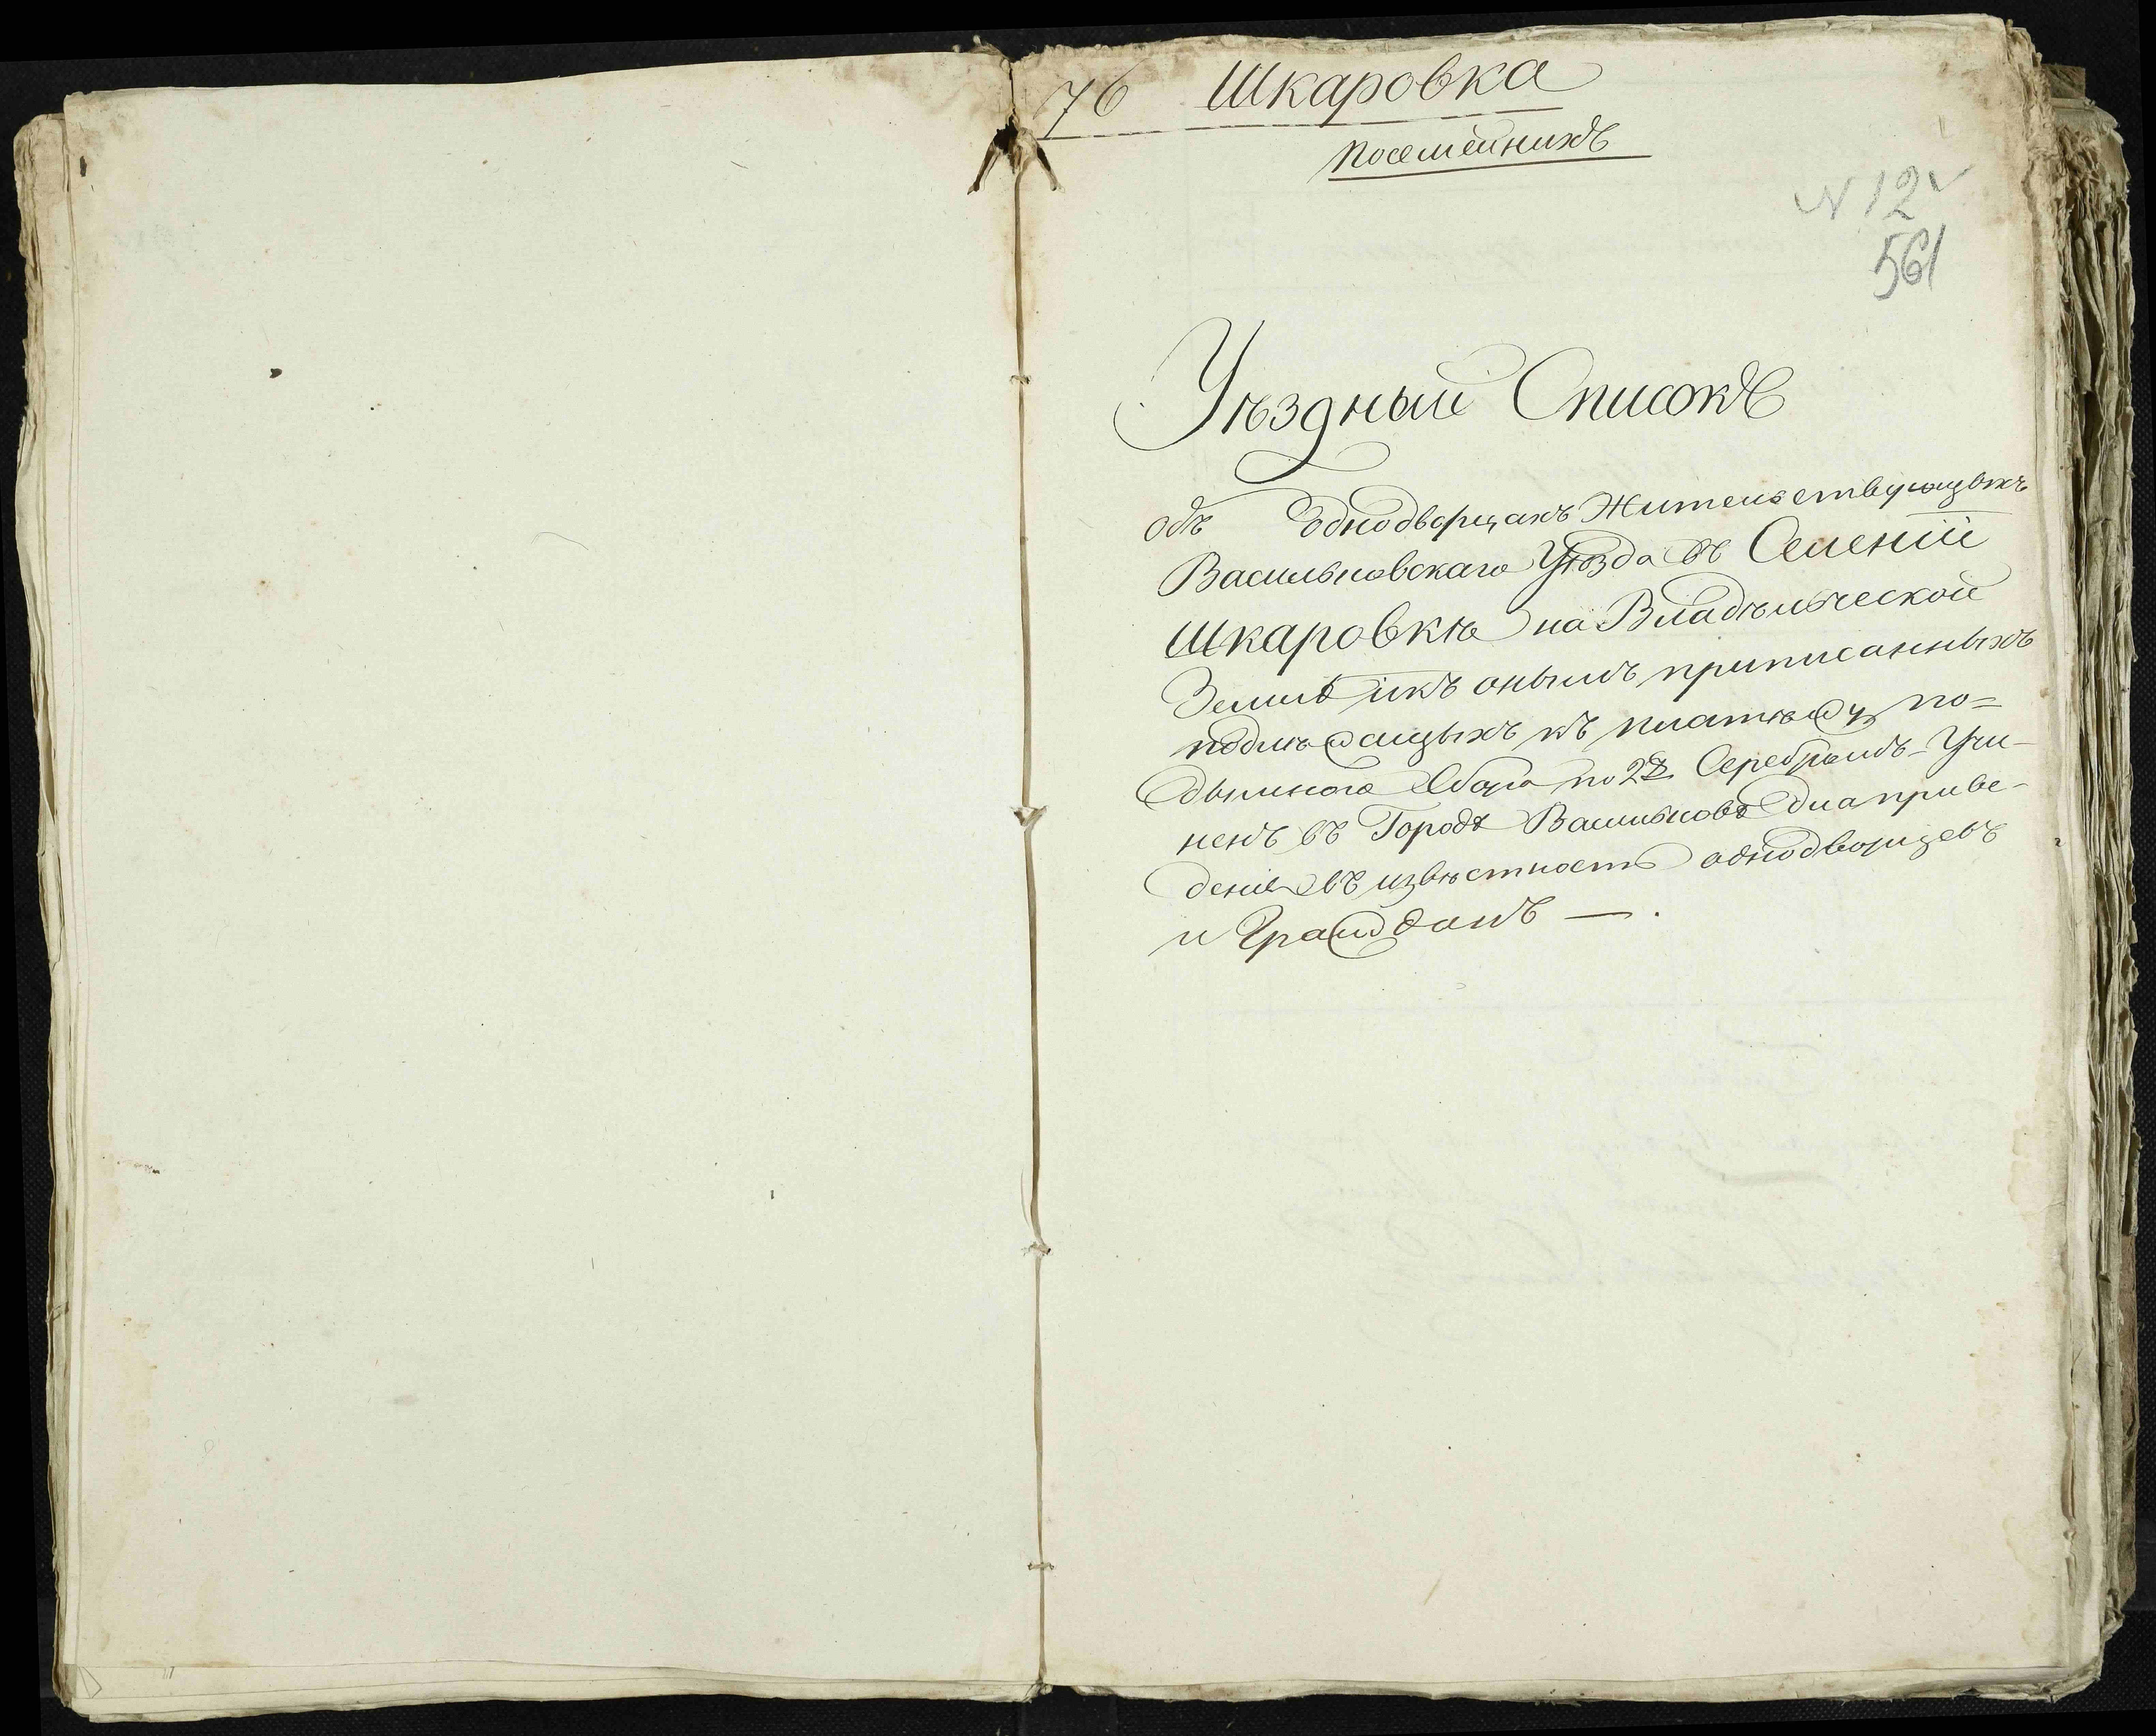 76 Шкаровка
Посемейникъ
N 12
561
Уѣздный Списокъ
объ Однодворцахъ Жительствующихъ
Васильковскаго Уѣзда въ Селеніи
Шкаровкѣ на Владѣльческой
Землѣ и къ онымъ приписанныхъ
подлежащыхъ къ платежу по=
дымнаго Сбора по 2 Серебромъ Учи-
ненъ въ Городѣ Васильковѣ для приве-
денія въ извѣстность однодворцевъ
и Гражданъ — .